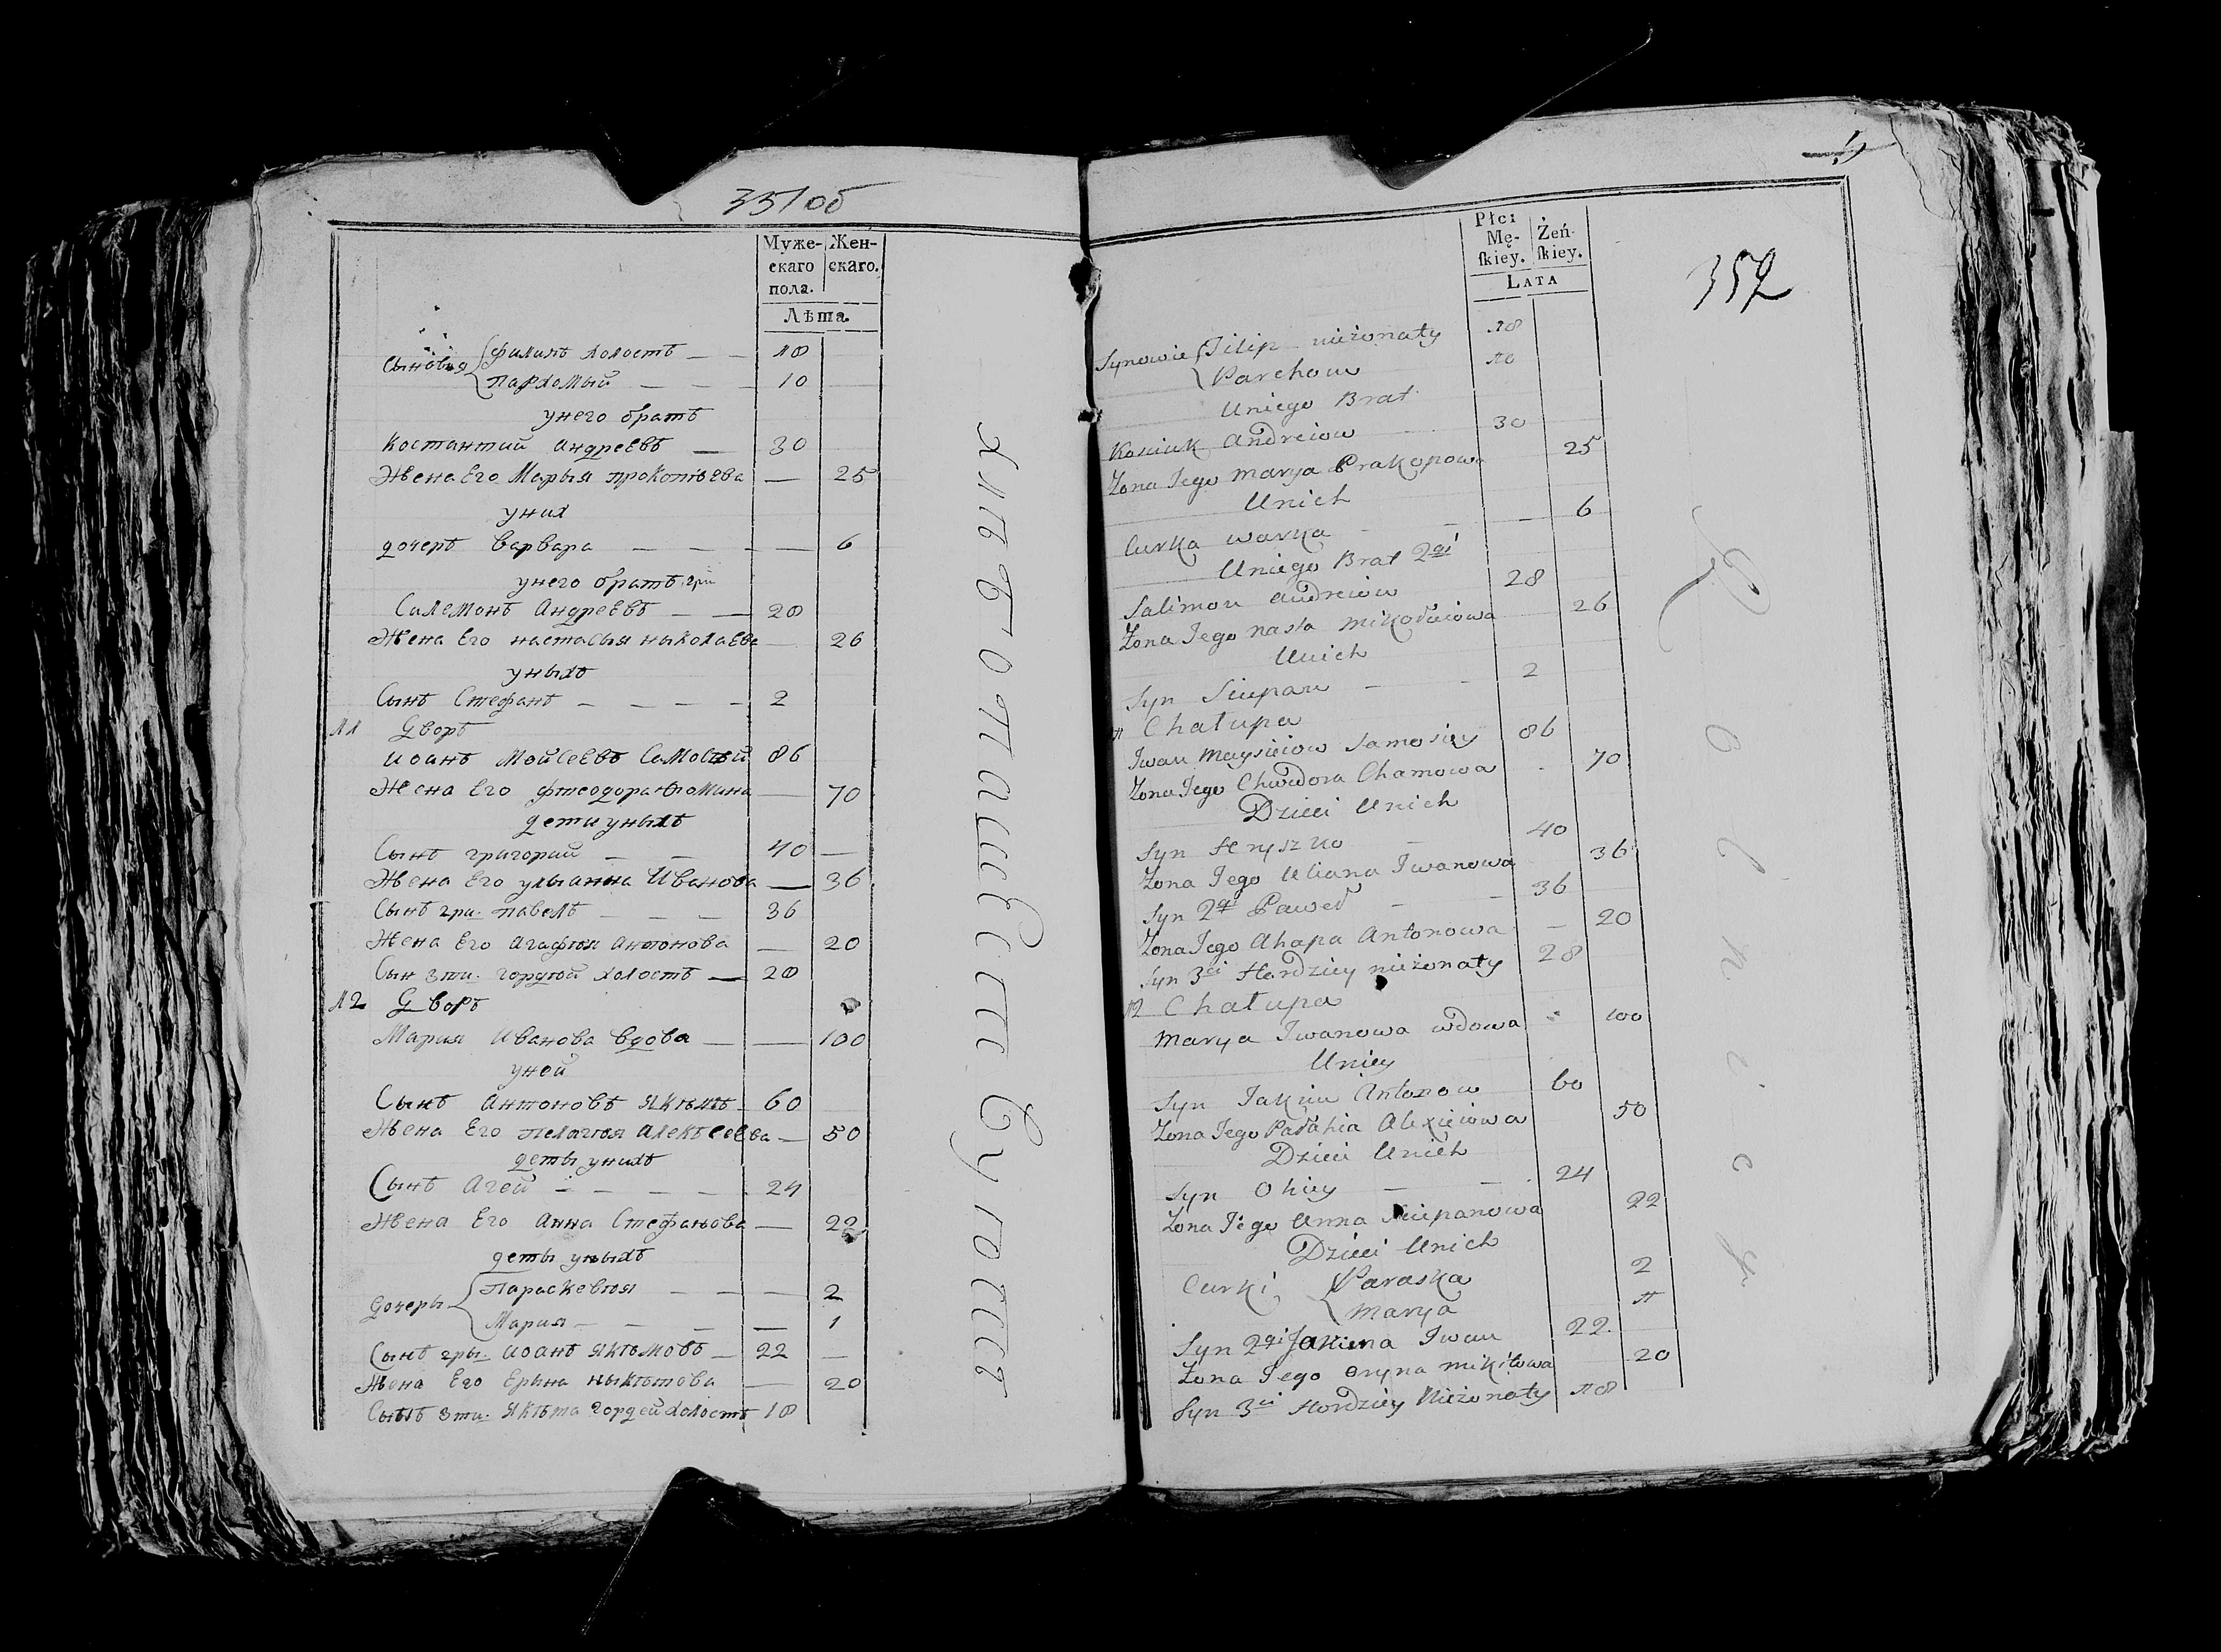 351об
Муже- Жен-
скаго скаго.
пола.
Лѣта.
Сыновья Филипъ холостъ — — 18
Пархомый — — — 10
унего братъ
Костантий Андреевъ — 30
Жена Его Марья прокопъева — 25
уних
дочеръ варвара — — — — 6
унего братъ
Салемонъ Андреевъ — — 28
Жена Его настасия николаева 26
уныхъ
Сынъ Стефанъ — — — — 2
11 Дворъ
иоанъ Мойсеевъ Самосѣй 86
Жена Его фтеодора — 70
дети уныхъ
Сынъ григорий — — 40 —
Жена Его улыанна Иванова — 36
Сынъ павелъ — — — 36
Жена Его агафия антонова — 20
Сын 3ти. гордѣй холостъ — 28
12 Дворъ
Мария Иванова вдова — — 100
уней
Сынъ антоновъ якимъ 60
Жена Его пелагия алексеева — 50
деты унихъ
Сынъ Агей — — — — 24
Жена Его Анна Стефанова — 22
деты уныхъ
дочеры Параскевия — — — 2
Мария — — — — 1
Сынъ иоанъ якимовъ — 22 —
Жена Его Ерина никитова — 20
Сынъ 3ти. якима гордей холостъ 18
хлѣбопашествують
352
Płci
Mę- Żeń-
skiey. skiey.
LATA
Synowie Filip nieżonaty 18
Parchom 10
Uniego Brat
Kościuk Andreiow 30
Żona Jego Marya Prakopowa 25
Unich
Curka warka — — — 6
Uniego Brat 2gi
Salimon andreiow 28
Żona Jego nasta mikołaiowa 26
Unich
Syn Sciepan — — 2
11 Chałupa
Iwan Maysieiow Samosiey 86
Żona Jego Chwiedora Chamowa 70
Dzieci Unich
Syn Hryszko — 40
Żona Jego Uliana Iwanowa 36
Syn 2gi Paweł — — 36
Żona Jego Ahapa Antonowa — 20
Syn 3ci Hardziey nieżonaty 28
12 Chałupa
Marya Iwanowa wdowa 100
Uniey
Syn Jakim Antonow 60
Żona Jego Pałahia Alexieiowa 50
Dzieci Unich
Syn Ohiey — — 24
Żona Jego Anna Sciepanowa 22
Dzieci Unich
Curki Paraska 2
Marya 1
Syn 2gi Jakima Iwan 22
Żona Jego Oryna mikitowa 20
Syn 3ci Hordziey Nieżonaty 18
Rolnicy